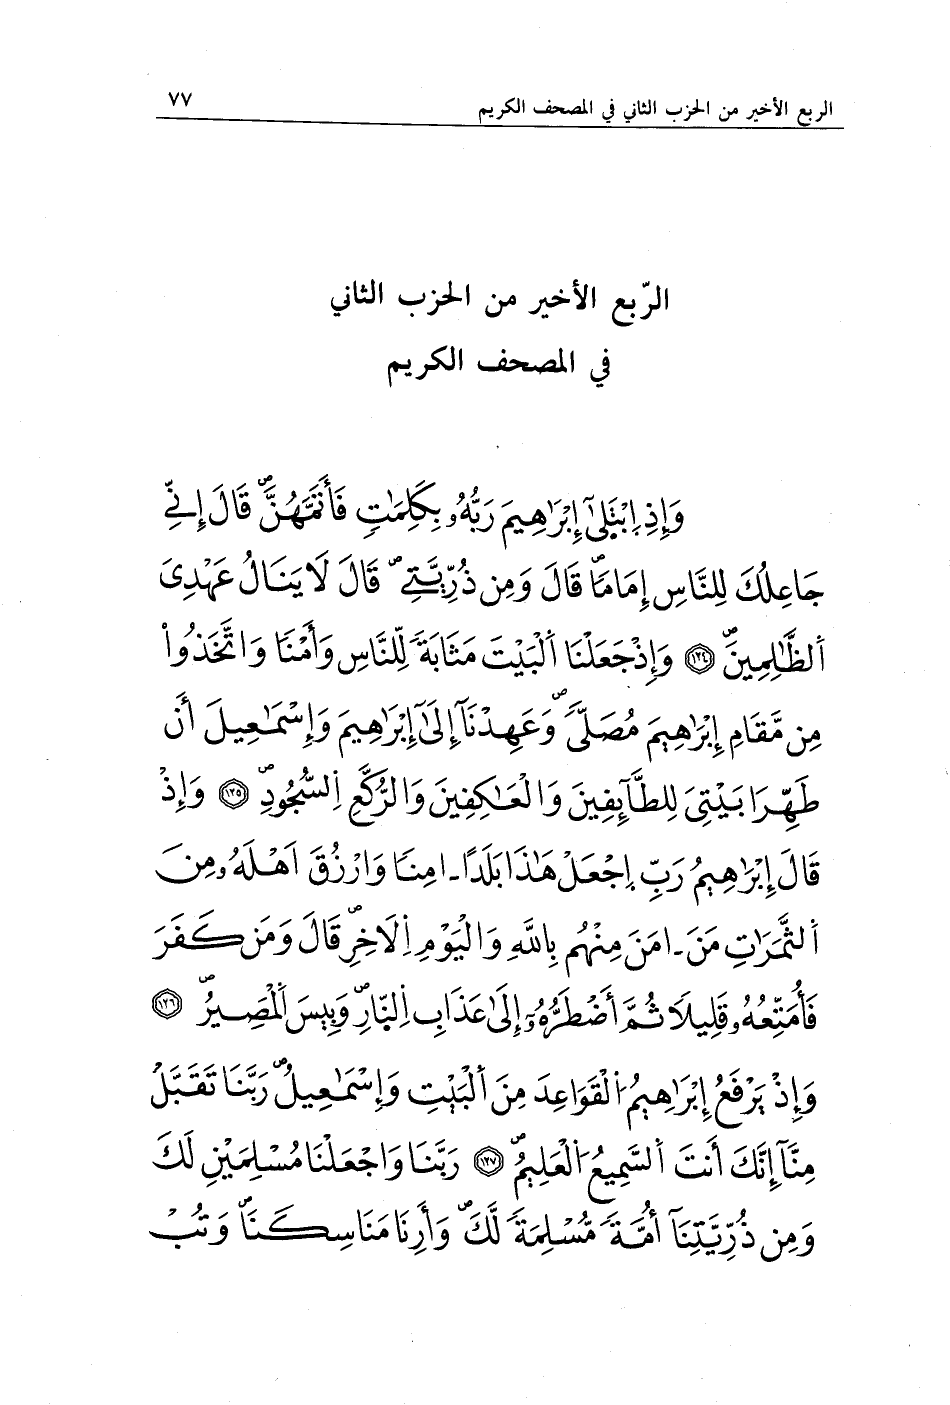 الربع الأخير من الحزب الثاني في المصحف الكريم ٧٧
الرّبع الأخير من الحزب الثاني
في المصحف الكريم
وَإِذِ اِبْتَلَىٰٓ إِبْرَٰهِيمَ رَبُّهُۥ بِكَلِمَٰتٖ فَأَتَمَّهُنَّۖ قَالَ إِنِّے
جَاعِلُكَ لِلنَّاسِ إِمَاماٗۖ قَالَ وَمِن ذُرِّيَّتِےۖ قَالَ لَا يَنَالُ عَهْدِى
اَ۬لظَّٰلِمِينَۖ ١٢٤ وَإِذْ جَعَلْنَا اَ۬لْبَيْتَ مَثَابَةٗ لِّلنَّاسِ وَأَمْناٗ وَاتَّخَذُواْ
مِن مَّقَامِ إِبْرَٰهِيمَ مُصَلّىٗۖ وَعَهِدْنَآ إِلَىٰٓ إِبْرَٰهِيمَ وَإِسْمَٰعِيلَ أَن
طَهِّرَا بَيْتِىَ لِلطَّآئِفِينَ وَالْعَٰكِفِينَ وَالرُّكَّعِ اِ۬لسُّجُودِۖ ١٢٥ وَإِذْ
قَالَ إِبْرَٰهِيمُ رَبِّ اِجْعَلْ هَٰذَا بَلَداً ـ امِناٗ وَارْزُقَ اَهْلَهُۥ مِنَ
اَ۬لثَّمَرَٰتِ مَنَ ـ امَنَ مِنْهُم بِاللَّهِ وَالْيَوْمِ اِ۬لَاخِرِۖ قَالَ وَمَن كَفَرَ
فَأُمَتِّعُهُۥ قَلِيلاٗ ثُمَّ أَضْطَرُّهُۥٓ إِلَىٰ عَذَابِ اِ۬لنّ۪ارِۖ وَبِيسَ اَ۬لْمَصِيرُۖ ١٢٦
وَإِذْ يَرْفَعُ إِبْرَٰهِيمُ اُ۬لْقَوَاعِدَ مِنَ اَ۬لْبَيْتِ وَإِسْمَٰعِيلُۖ رَبَّنَا تَقَبَّلْ
مِنَّآ إِنَّكَ أَنتَ اَ۬لسَّمِيعُ اُ۬لْعَلِيمُۖ ١٢٧ رَبَّنَا وَاجْعَلْنَا مُسْلِمَيْنِ لَكَ
وَمِن ذُرِّيَّتِنَآ أُمَّةٗ مُّسْلِمَةٗ لَّكَۖ وَأَرِنَا مَنَاسِكَنَاۖ وَتُبْ